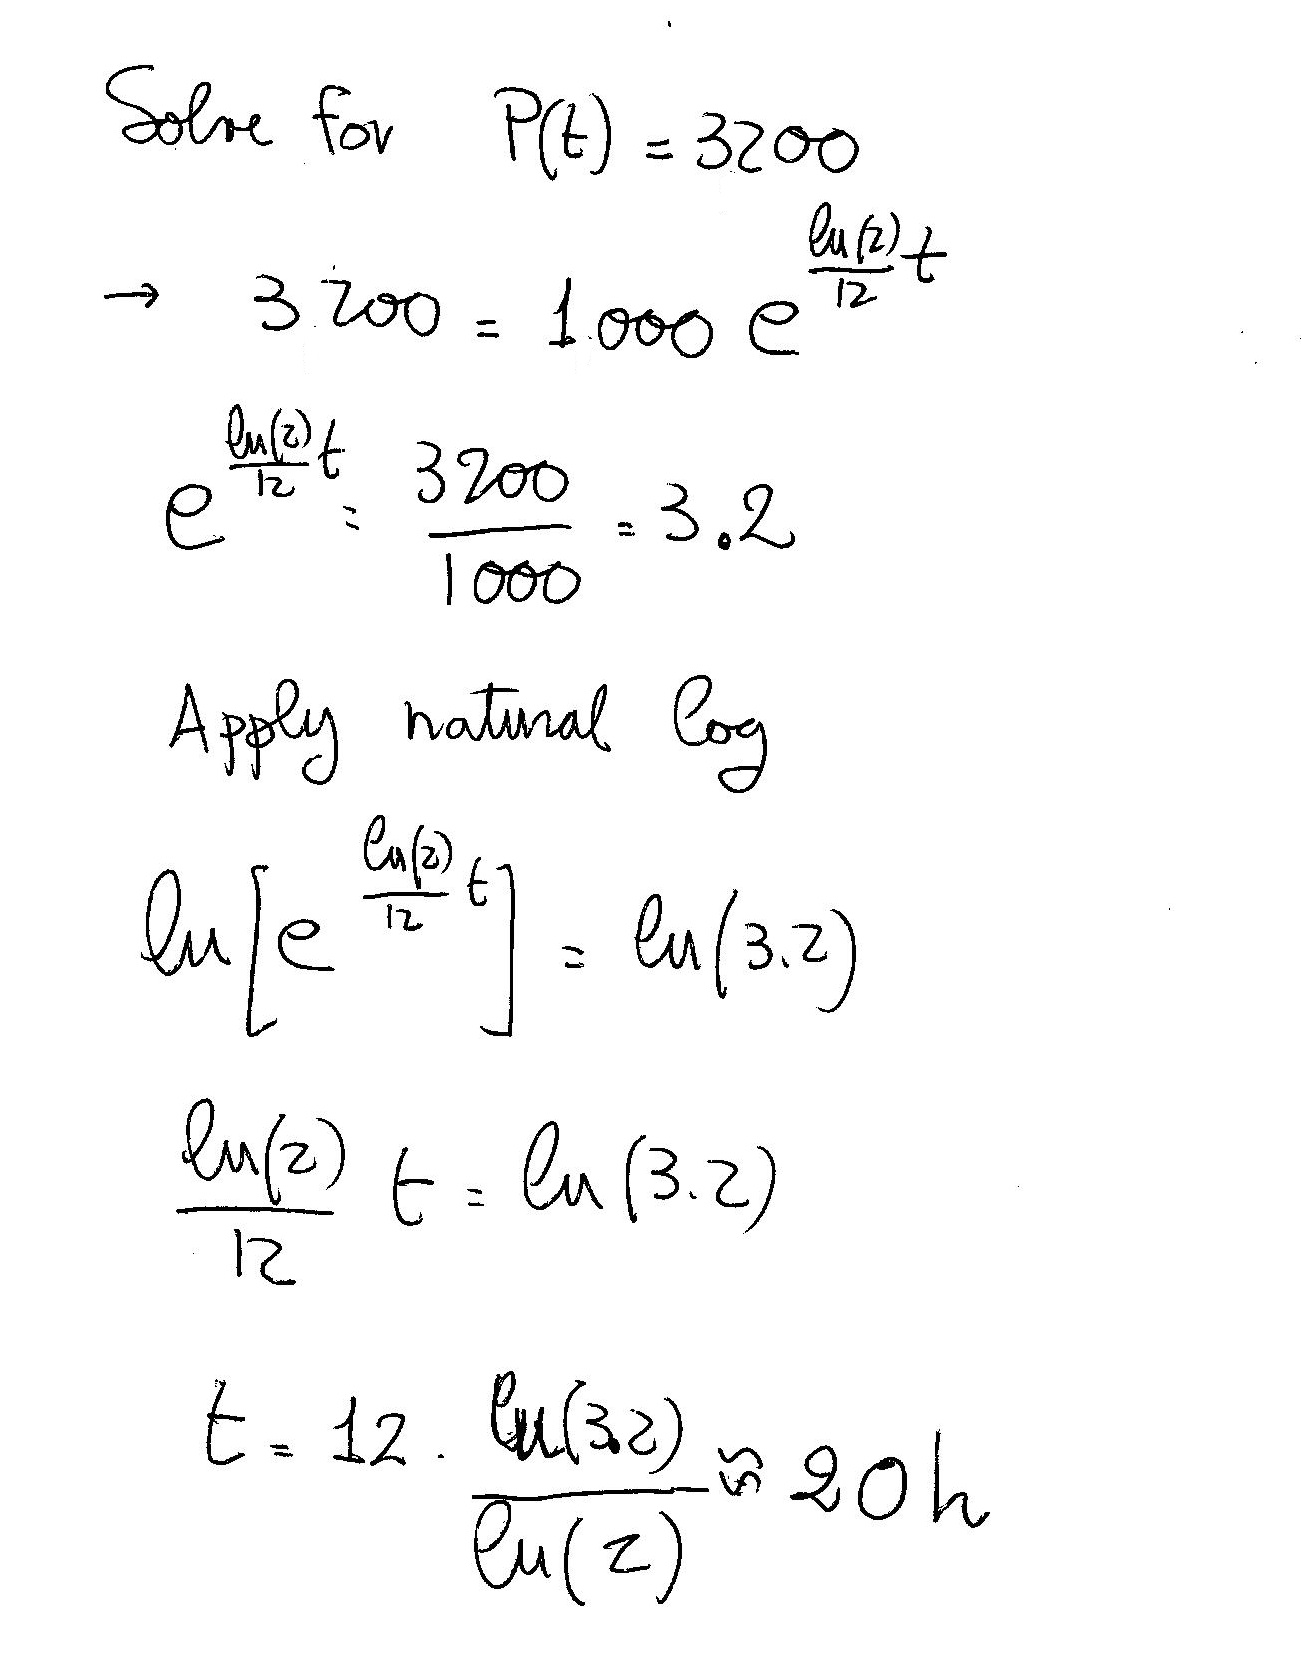 Solve for P(t) = 3200
→ 3200 = 1.000 e^{\frac{ln(2)}{12} t}
e^{\frac{ln(2)}{12} t} = \frac{3200}{1000} = 3.2
Apply natural log
ln[e^{\frac{ln(2)}{12} t}] = ln(3.2)
\frac{ln(2)}{12} t = ln(3.2)
t = 12 . \frac{ln(3.2)}{ln(2)} ≈ 20h